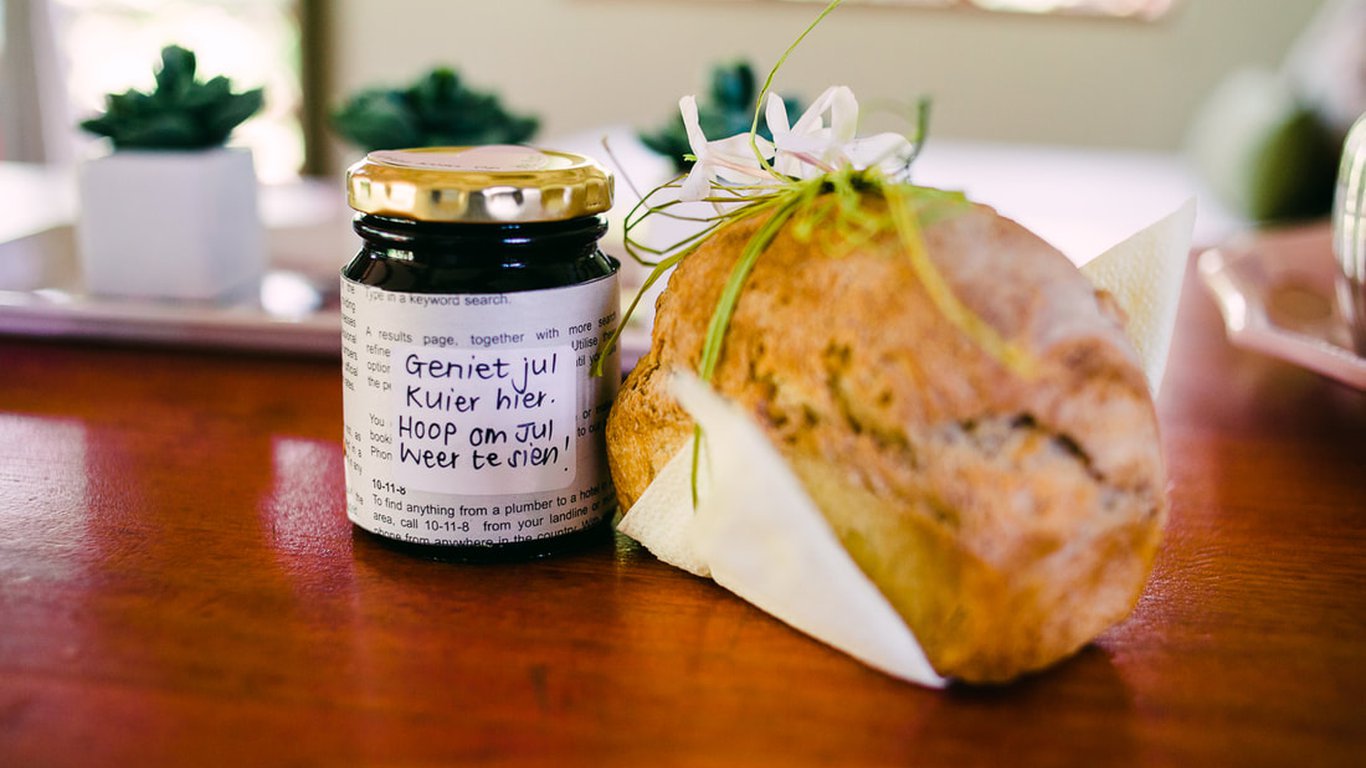 Type in a keyword search.
A results page, together with more search
refine
Utilise
option
until you
the pe
Geniet jul
Kuier hier.
Hoop om Jul
Weer te sien!
You
or
book
to our
Phon
10-11-8
To find anything from a plumber to a hotel in
area, call 10-11-8 from your landline or
phone from anywhere in the country. With